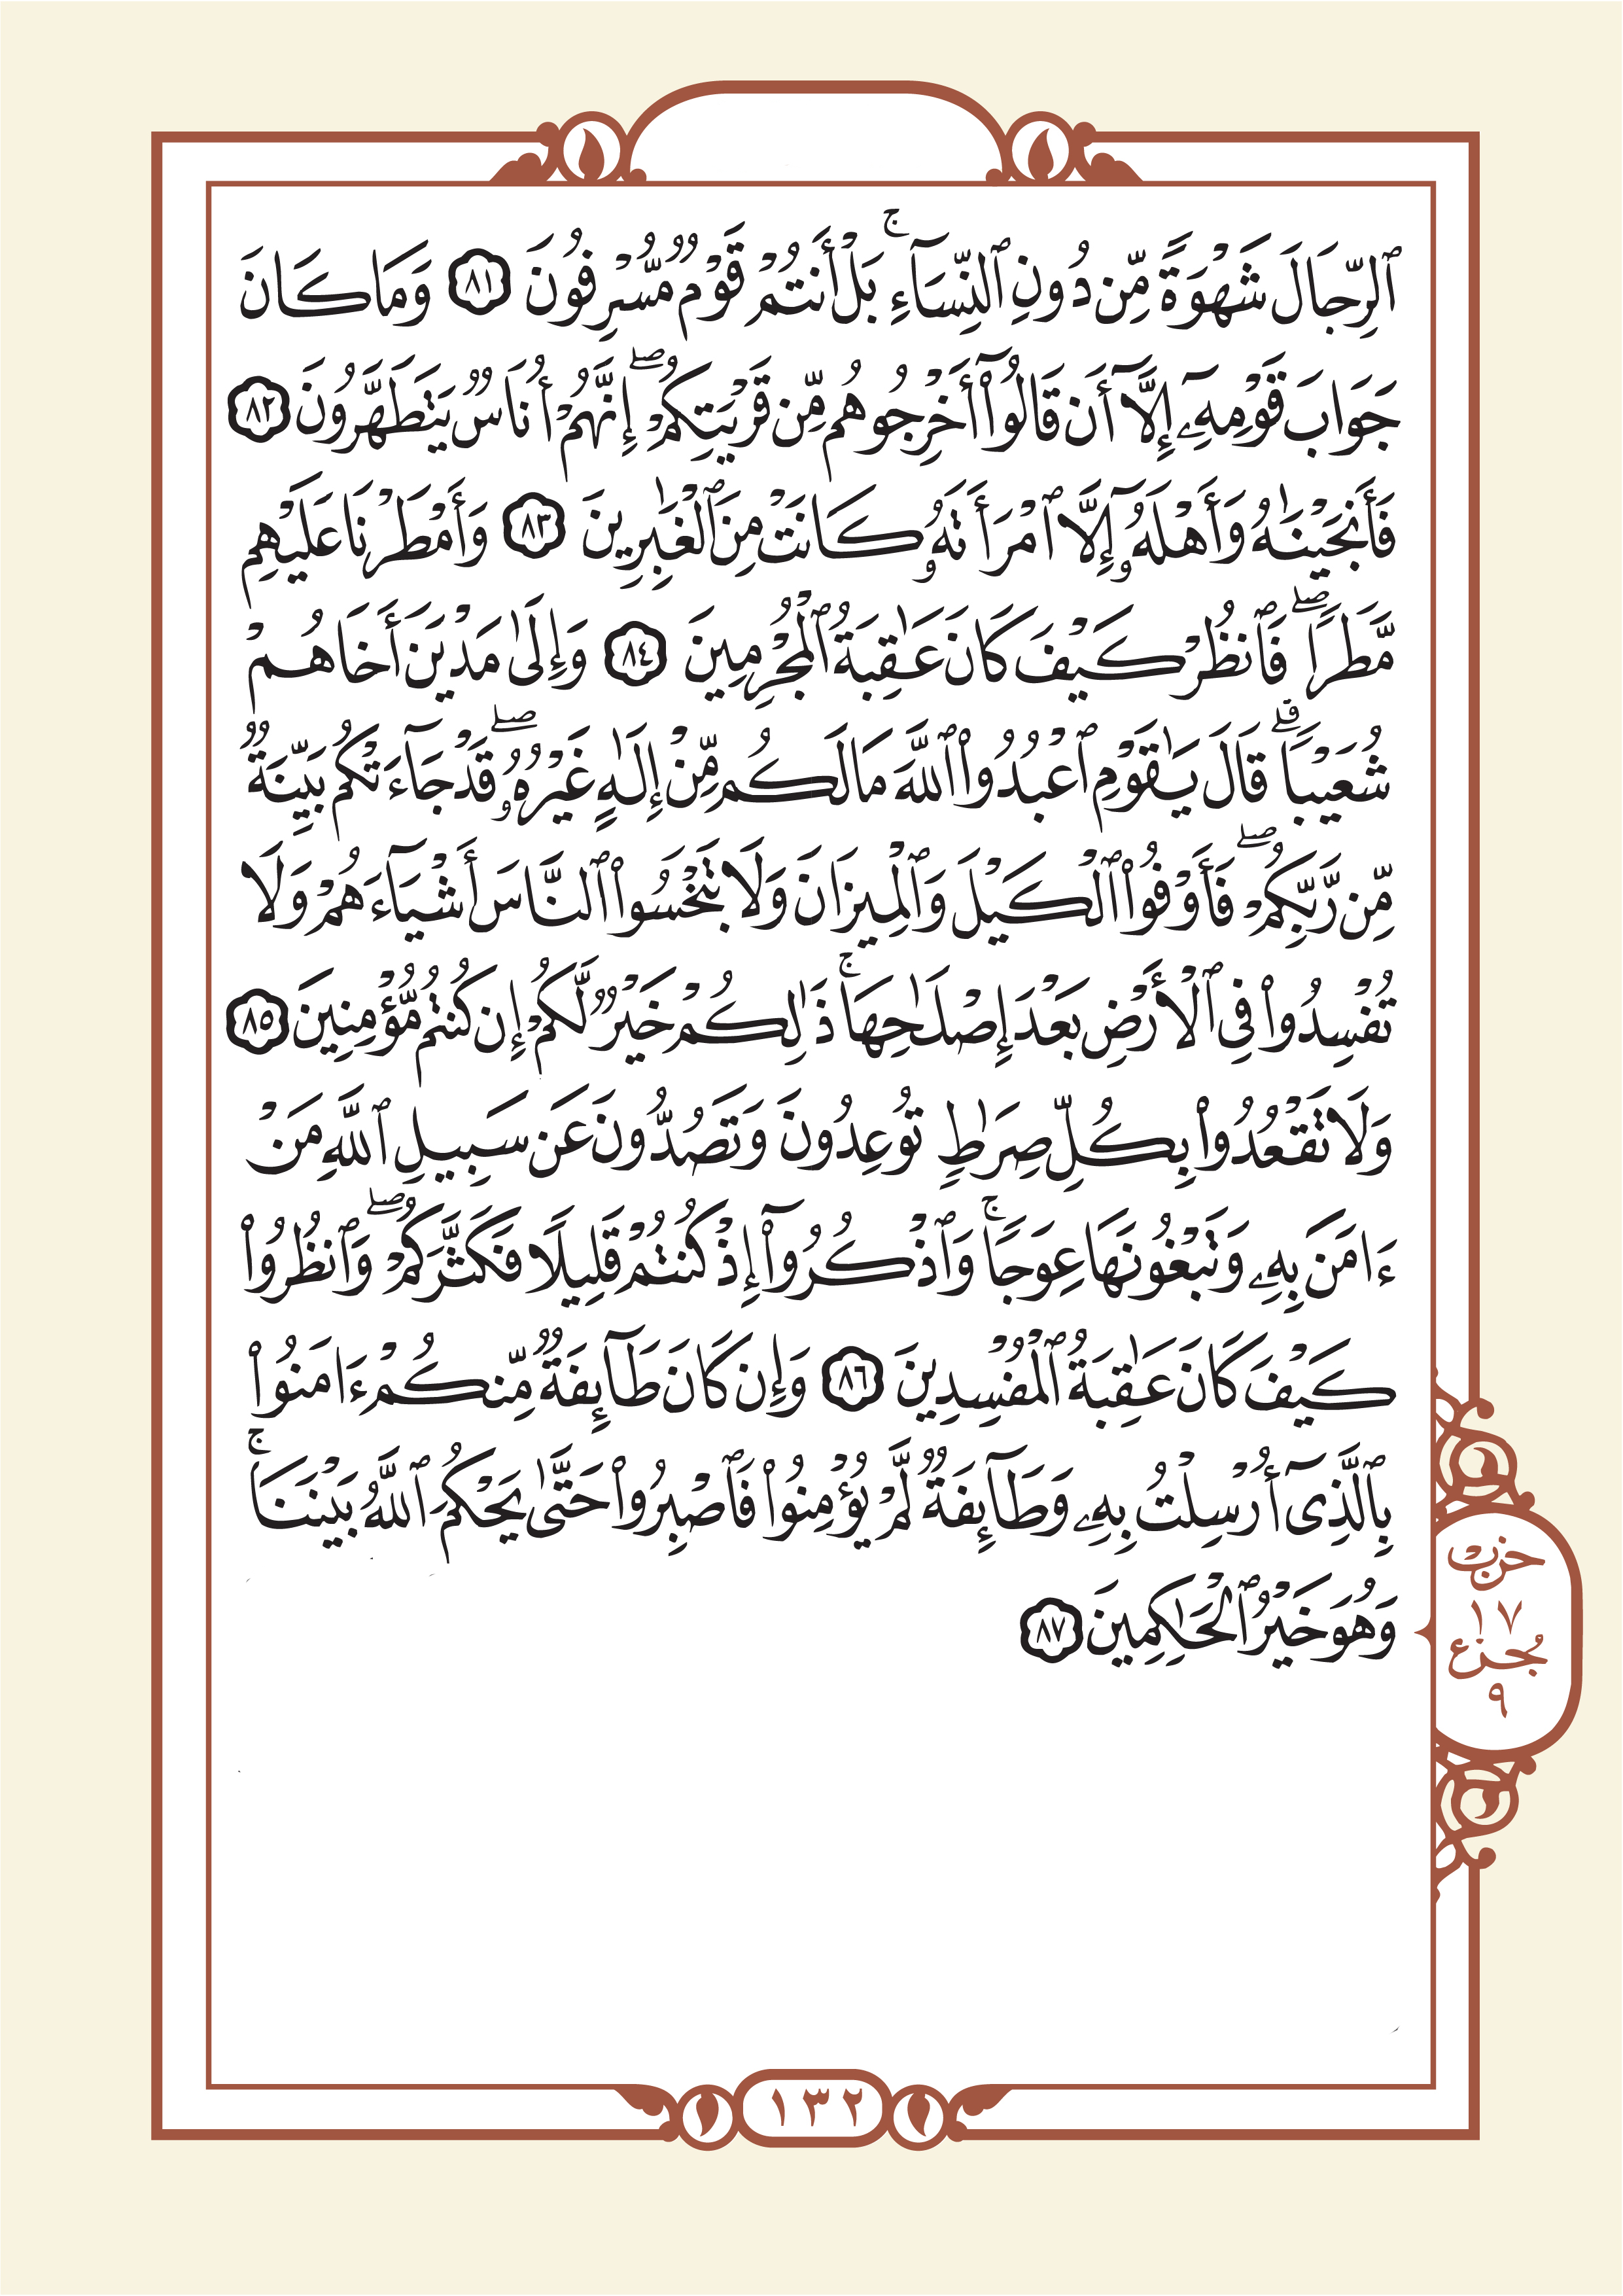 ٱلرِّجَالَ شَهْوَةً مِّن دُونِ ٱلنِّسَآءِ ۚ بَلْ أَنتُمْ قَوْمٌ مُّسْرِفُونَ ٨١ وَمَا كَانَ
جَوَابَ قَوْمِهِۦٓ إِلَّآ أَن قَالُوٓا۟ أَخْرِجُوهُم مِّن قَرْيَتِكُمْ ۖ إِنَّهُمْ أُنَاسٌ يَتَطَهَّرُونَ ٨٢
فَأَنجَيْنَٰهُ وَأَهْلَهُۥٓ إِلَّا ٱمْرَأَتَهُۥ كَانَتْ مِنَ ٱلْغَٰبِرِينَ ٨٣ وَأَمْطَرْنَا عَلَيْهِم
مَّطَرًا ۖ فَٱنظُرْ كَيْفَ كَانَ عَٰقِبَةُ ٱلْمُجْرِمِينَ ٨٤ وَإِلَىٰ مَدْيَنَ أَخَاهُمْ
شُعَيْبًا ۗ قَالَ يَٰقَوْمِ ٱعْبُدُوا۟ ٱللَّهَ مَا لَكُم مِّنْ إِلَٰهٍ غَيْرُهُۥ ۖ قَدْ جَآءَتْكُم بَيِّنَةٌ
مِّن رَّبِّكُمْ ۖ فَأَوْفُوا۟ ٱلْكَيْلَ وَٱلْمِيزَانَ وَلَا تَبْخَسُوا۟ ٱلنَّاسَ أَشْيَآءَهُمْ وَلَا
تُفْسِدُوا۟ فِى ٱلْأَرْضِ بَعْدَ إِصْلَٰحِهَا ۚ ذَٰلِكُمْ خَيْرٌ لَّكُمْ إِن كُنتُم مُّؤْمِنِينَ ٨٥
وَلَا تَقْعُدُوا۟ بِكُلِّ صِرَٰطٍ تُوعِدُونَ وَتَصُدُّونَ عَن سَبِيلِ ٱللَّهِ مَنْ
ءَامَنَ بِهِۦ وَتَبْغُونَهَا عِوَجًا ۚ وَٱذْكُرُوٓا۟ إِذْ كُنتُمْ قَلِيلًا فَكَثَّرَكُمْ ۖ وَٱنظُرُوا۟
كَيْفَ كَانَ عَٰقِبَةُ ٱلْمُفْسِدِينَ ٨٦ وَإِن كَانَ طَآئِفَةٌ مِّنكُمْ ءَامَنُوا۟
بِٱلَّذِىٓ أُرْسِلْتُ بِهِۦ وَطَآئِفَةٌ لَّمْ يُؤْمِنُوا۟ فَٱصْبِرُوا۟ حَتَّىٰ يَحْكُمَ ٱللَّهُ بَيْنَنَا ۚ
وَهُوَ خَيْرُ ٱلْحَٰكِمِينَ ٨٧
حزب
١٧
جزء
٩
١٣٢